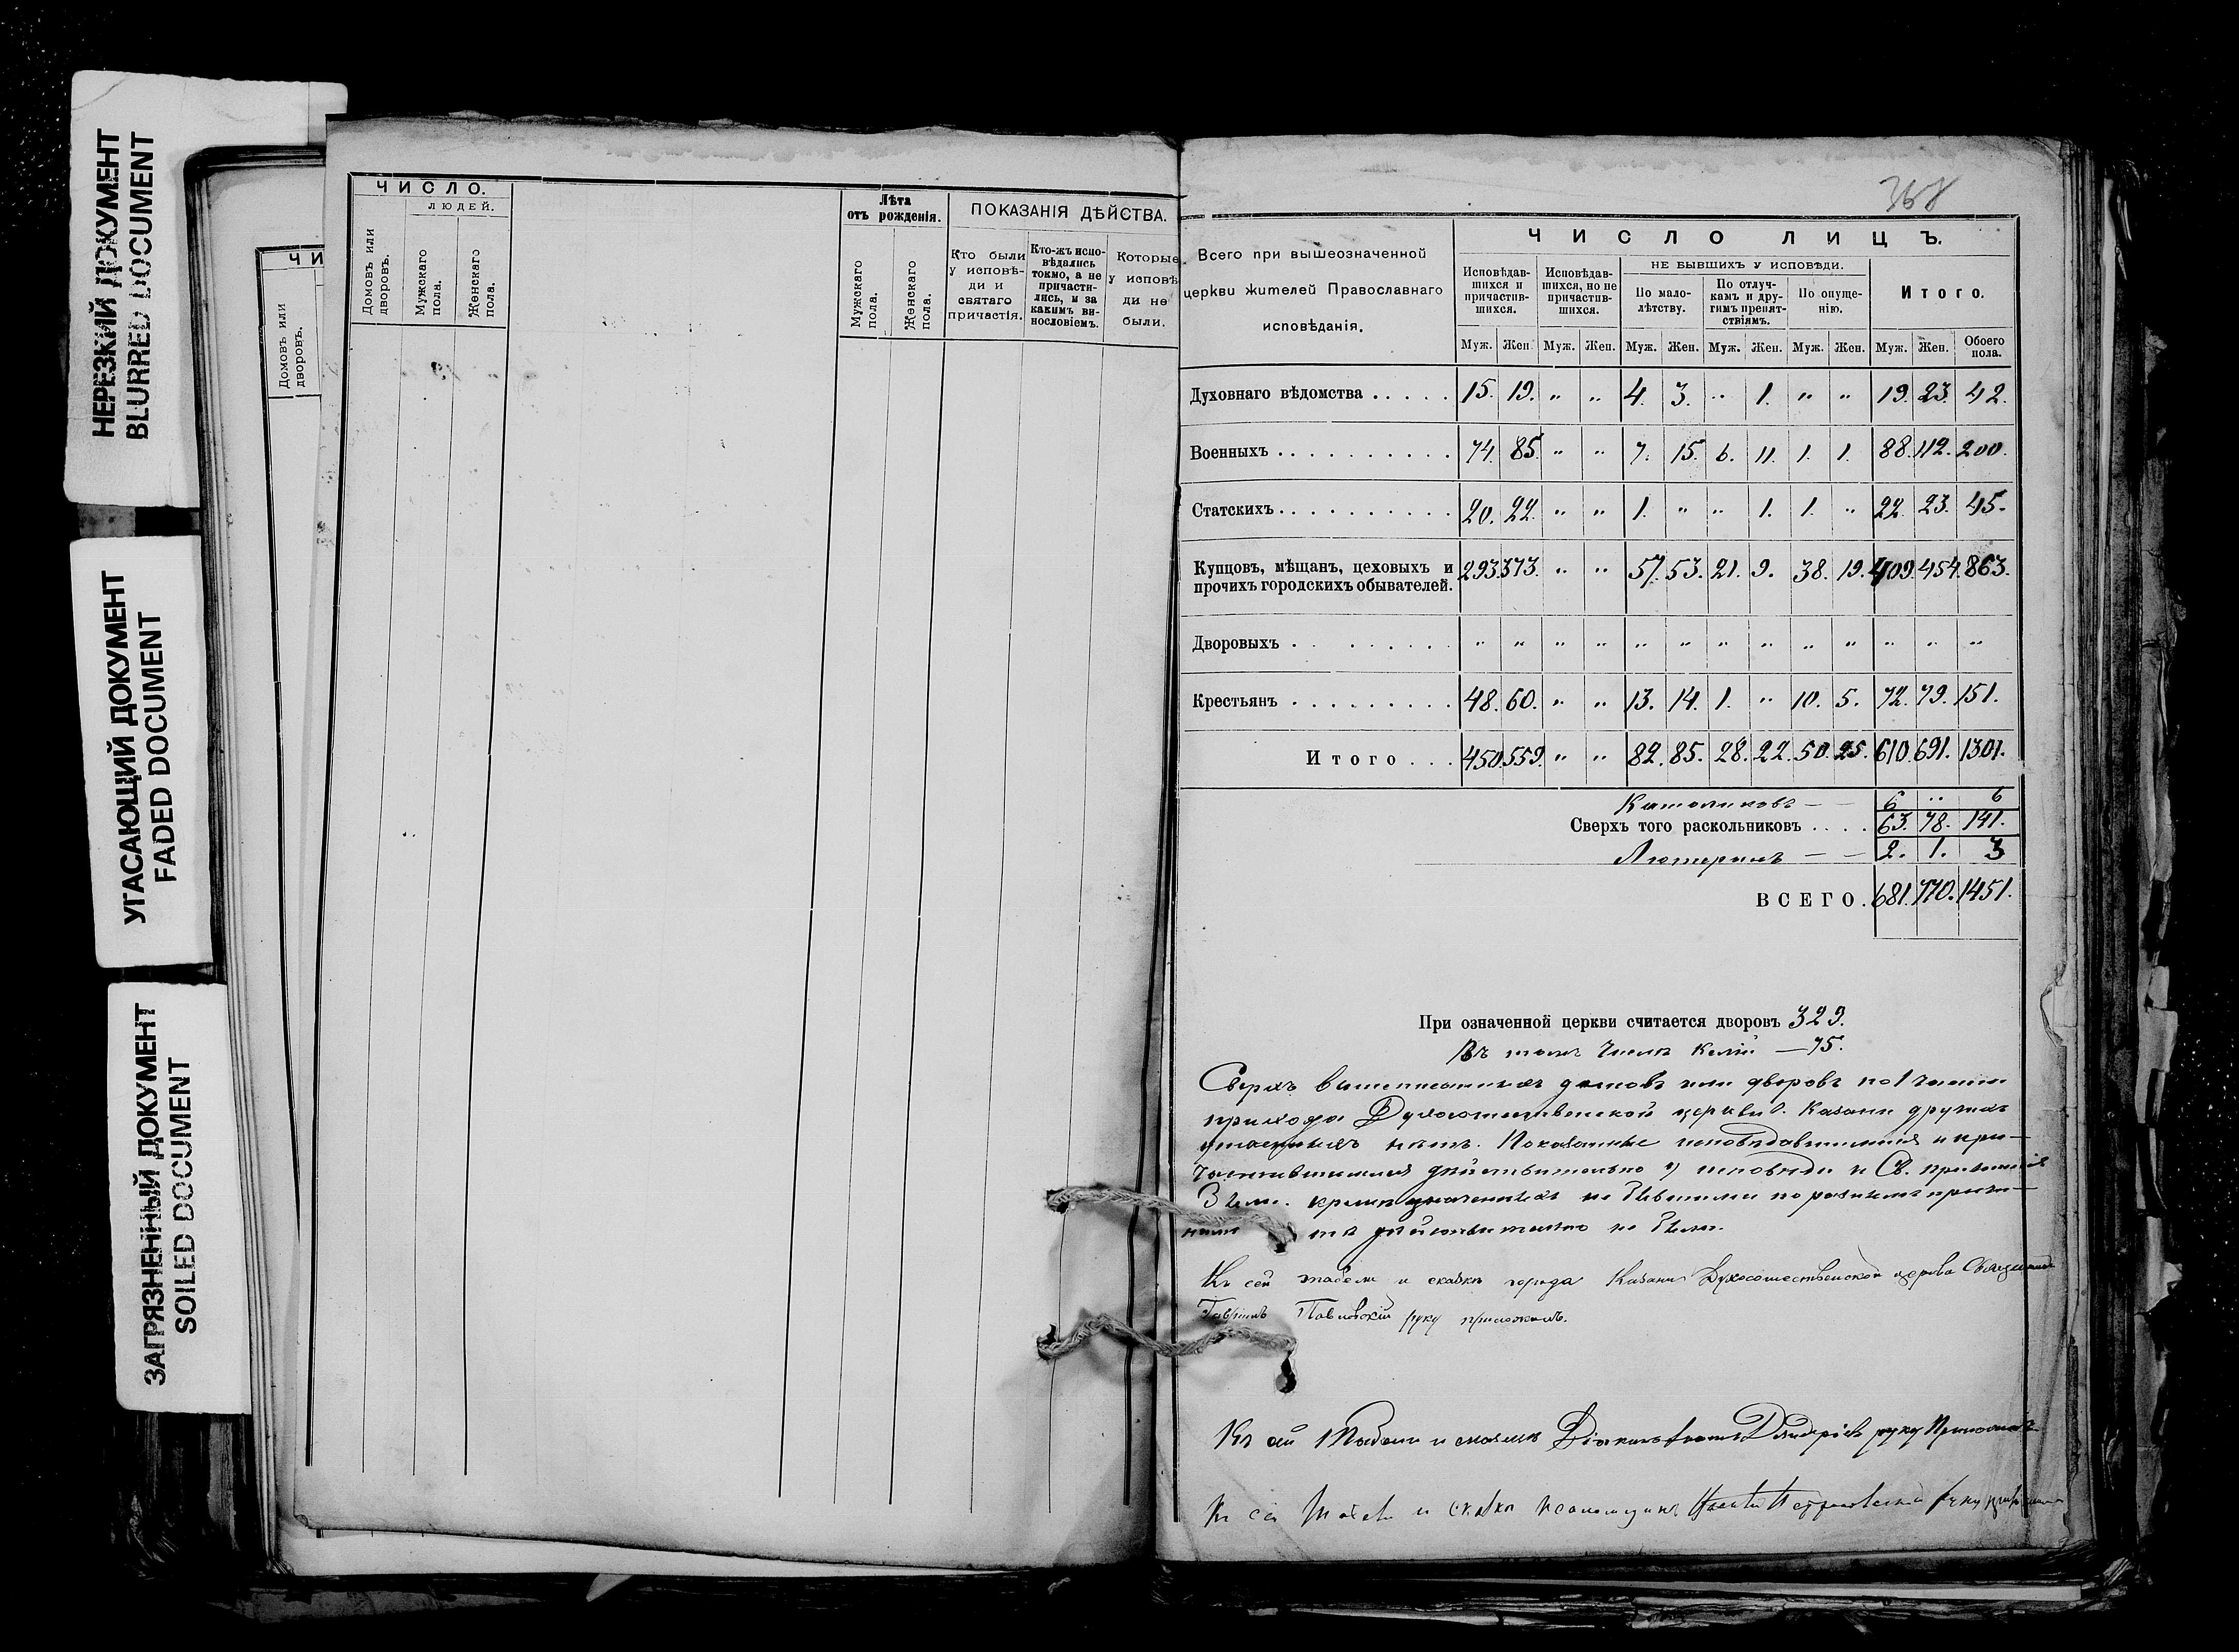 НЕРЕЗКИЙ ДОКУМЕНТ
BLURRED DOCUMENT
УГАСАЮЩИЙ ДОКУМЕНТ
FADED DOCUMENT
ЗАГРЯЗНЕННЫЙ ДОКУМЕНТ
SOILED DOCUMENT
ЧИ
Домовъ или дворовъ.
ЧИСЛО.
ЛЮДЕЙ.
Домовъ или дворовъ.
Мужскаго пола.
Женскаго пола.
Лѣта
отъ рожденія.
Мужскаго пола.
Женскаго пола.
ПОКАЗАНІЯ ДѢЙСТВА.
Кто были
у исповѣ-
ди и
святаго
причастія.
Кто-жъ испо-
вѣдались
токмо, а не
причасти-
лись, и за
какимъ ви-
нословіемъ.
Которые
у исповѣ-
ди не
были.
368
Всего при вышеозначенной
церкви жителей Православнаго
исповѣданія.
ЧИСЛО ЛИЦЪ.
Исповѣдав-
шихся и
причастив-
шихся.
Исповѣдав-
шихся, но не
причастив-
шихся.
НЕ БЫВШИХЪ У ИСПОВѢДИ.
По мало-
лѣтству.
По отлуч-
камъ и дру-
гимъ препят-
ствіямъ.
По опуще-
нію.
Итого.
Муж. Жен. Муж. Жен. Муж. Жен. Муж. Жен. Муж. Жен. Муж. Жен. Обоего пола.
Духовнаго вѣдомства . . . . . 15. 19. " " 4. 3. " 1. " " 19. 23. 42.
Военныхъ . . . . . . . . . . 74. 85. " " 7. 15. 6. 11. 1. 1. 88. 112. 200.
Статскихъ . . . . . . . . . . 20. 22. " " 1. " " 1. 1. " 22. 23. 45.
Купцовъ, мѣщанъ, цеховыхъ и
прочихъ городскихъ обывателей. 293. 373. " " 57. 53. 21. 9. 38. 19. 409. 454. 863.
Дворовыхъ . . . . . . . " " " " " " " " " " " " "
Крестьянъ . . . . . . . . . 48. 60. " " 13. 14. 1. " 10. 5. 72. 79. 151.
Итого . . . 450. 559. " " 82. 85. 28. 22. 50. 25. 610. 691. 1301.
Католиковъ — — 6 " 6
Сверхъ того раскольниковъ . . . . 63. 78. 141.
Лютеранъ — — 2. 1. 3
ВСЕГО. 681. 770. 1451.
При означенной церкви считается дворовъ 329.
Въ томъ числѣ келій — 75.
Сверхъ вышеписанныхъ домовъ или дворовъ по 1 части
прихода Духосошественской церкви г. Казани другихъ
нѣтъ. Показанные исповѣдавшимися и при-
частившимися дѣйствительно у исповѣди и Св. причастія
не бывшими по разнымъ причи-
намъ тѣ дѣйствительно не были.
Къ сей табели и сказкѣ города Казани Духосошественской церкви Священникъ
Гавріилъ Павловскій руку приложилъ.
Къ сей табели и сказкѣ Діаконъ руку приложилъ
Къ сей табели и сказкѣ псаломщикъ руку приложилъ